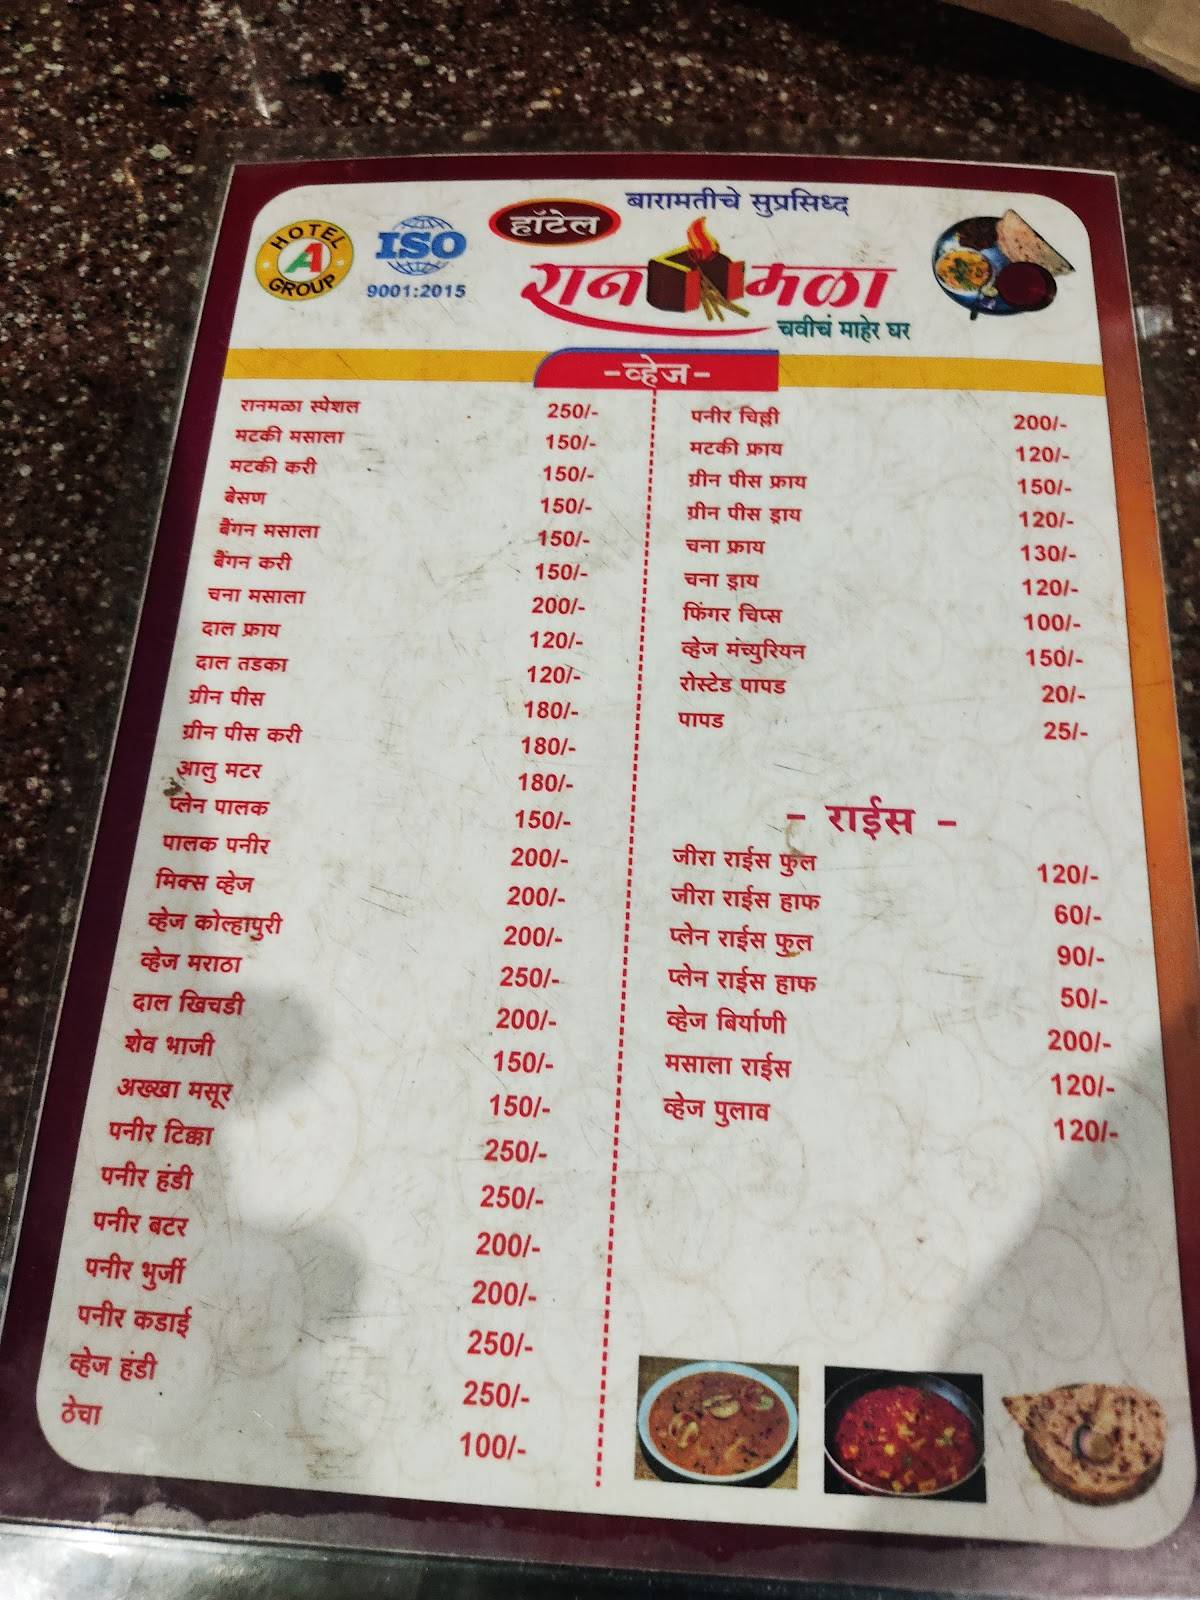 HOTEL
A
GROUP
ISO
9001:2015
बारामतीचे सुप्रसिध्द
हॉटेल
रानमळा
चवीचं माहेर घर
-व्हेज-
रानमळा स्पेशल 250/-
मटकी मसाला 150/-
मटकी करी 150/-
बेसण 150/-
बैंगन मसाला 150/-
बैंगन करी 150/-
चना मसाला 200/-
दाल फ्राय 120/-
दाल तडका 120/-
ग्रीन पीस 180/-
ग्रीन पीस करी 180/-
आलु मटर 180/-
प्लेन पालक 150/-
पालक पनीर 200/-
मिक्स व्हेज 200/-
व्हेज कोल्हापुरी 200/-
व्हेज मराठा 250/-
दाल खिचडी 200/-
शेव भाजी 150/-
अख्खा मसूर 150/-
पनीर टिक्का 250/-
पनीर हंडी 250/-
पनीर बटर 200/-
पनीर भुर्जी 200/-
पनीर कडाई 250/-
व्हेज हंडी 250/-
ठेचा 100/-
पनीर चिल्ली 200/-
मटकी फ्राय 120/-
ग्रीन पीस फ्राय 150/-
ग्रीन पीस ड्राय 120/-
चना फ्राय 130/-
चना ड्राय 120/-
फिंगर चिप्स 100/-
व्हेज मंच्युरियन 150/-
रोस्टेड पापड 20/-
पापड 25/-
- राईस -
जीरा राईस फुल 120/-
जीरा राईस हाफ 60/-
प्लेन राईस फुल 90/-
प्लेन राईस हाफ 50/-
व्हेज बिर्याणी 200/-
मसाला राईस 120/-
व्हेज पुलाव 120/-